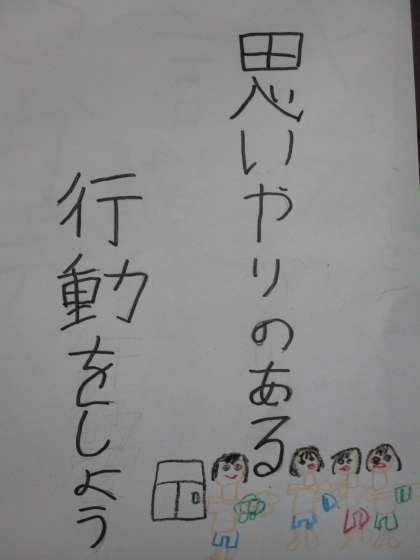 思いやりのある
行動をしよう